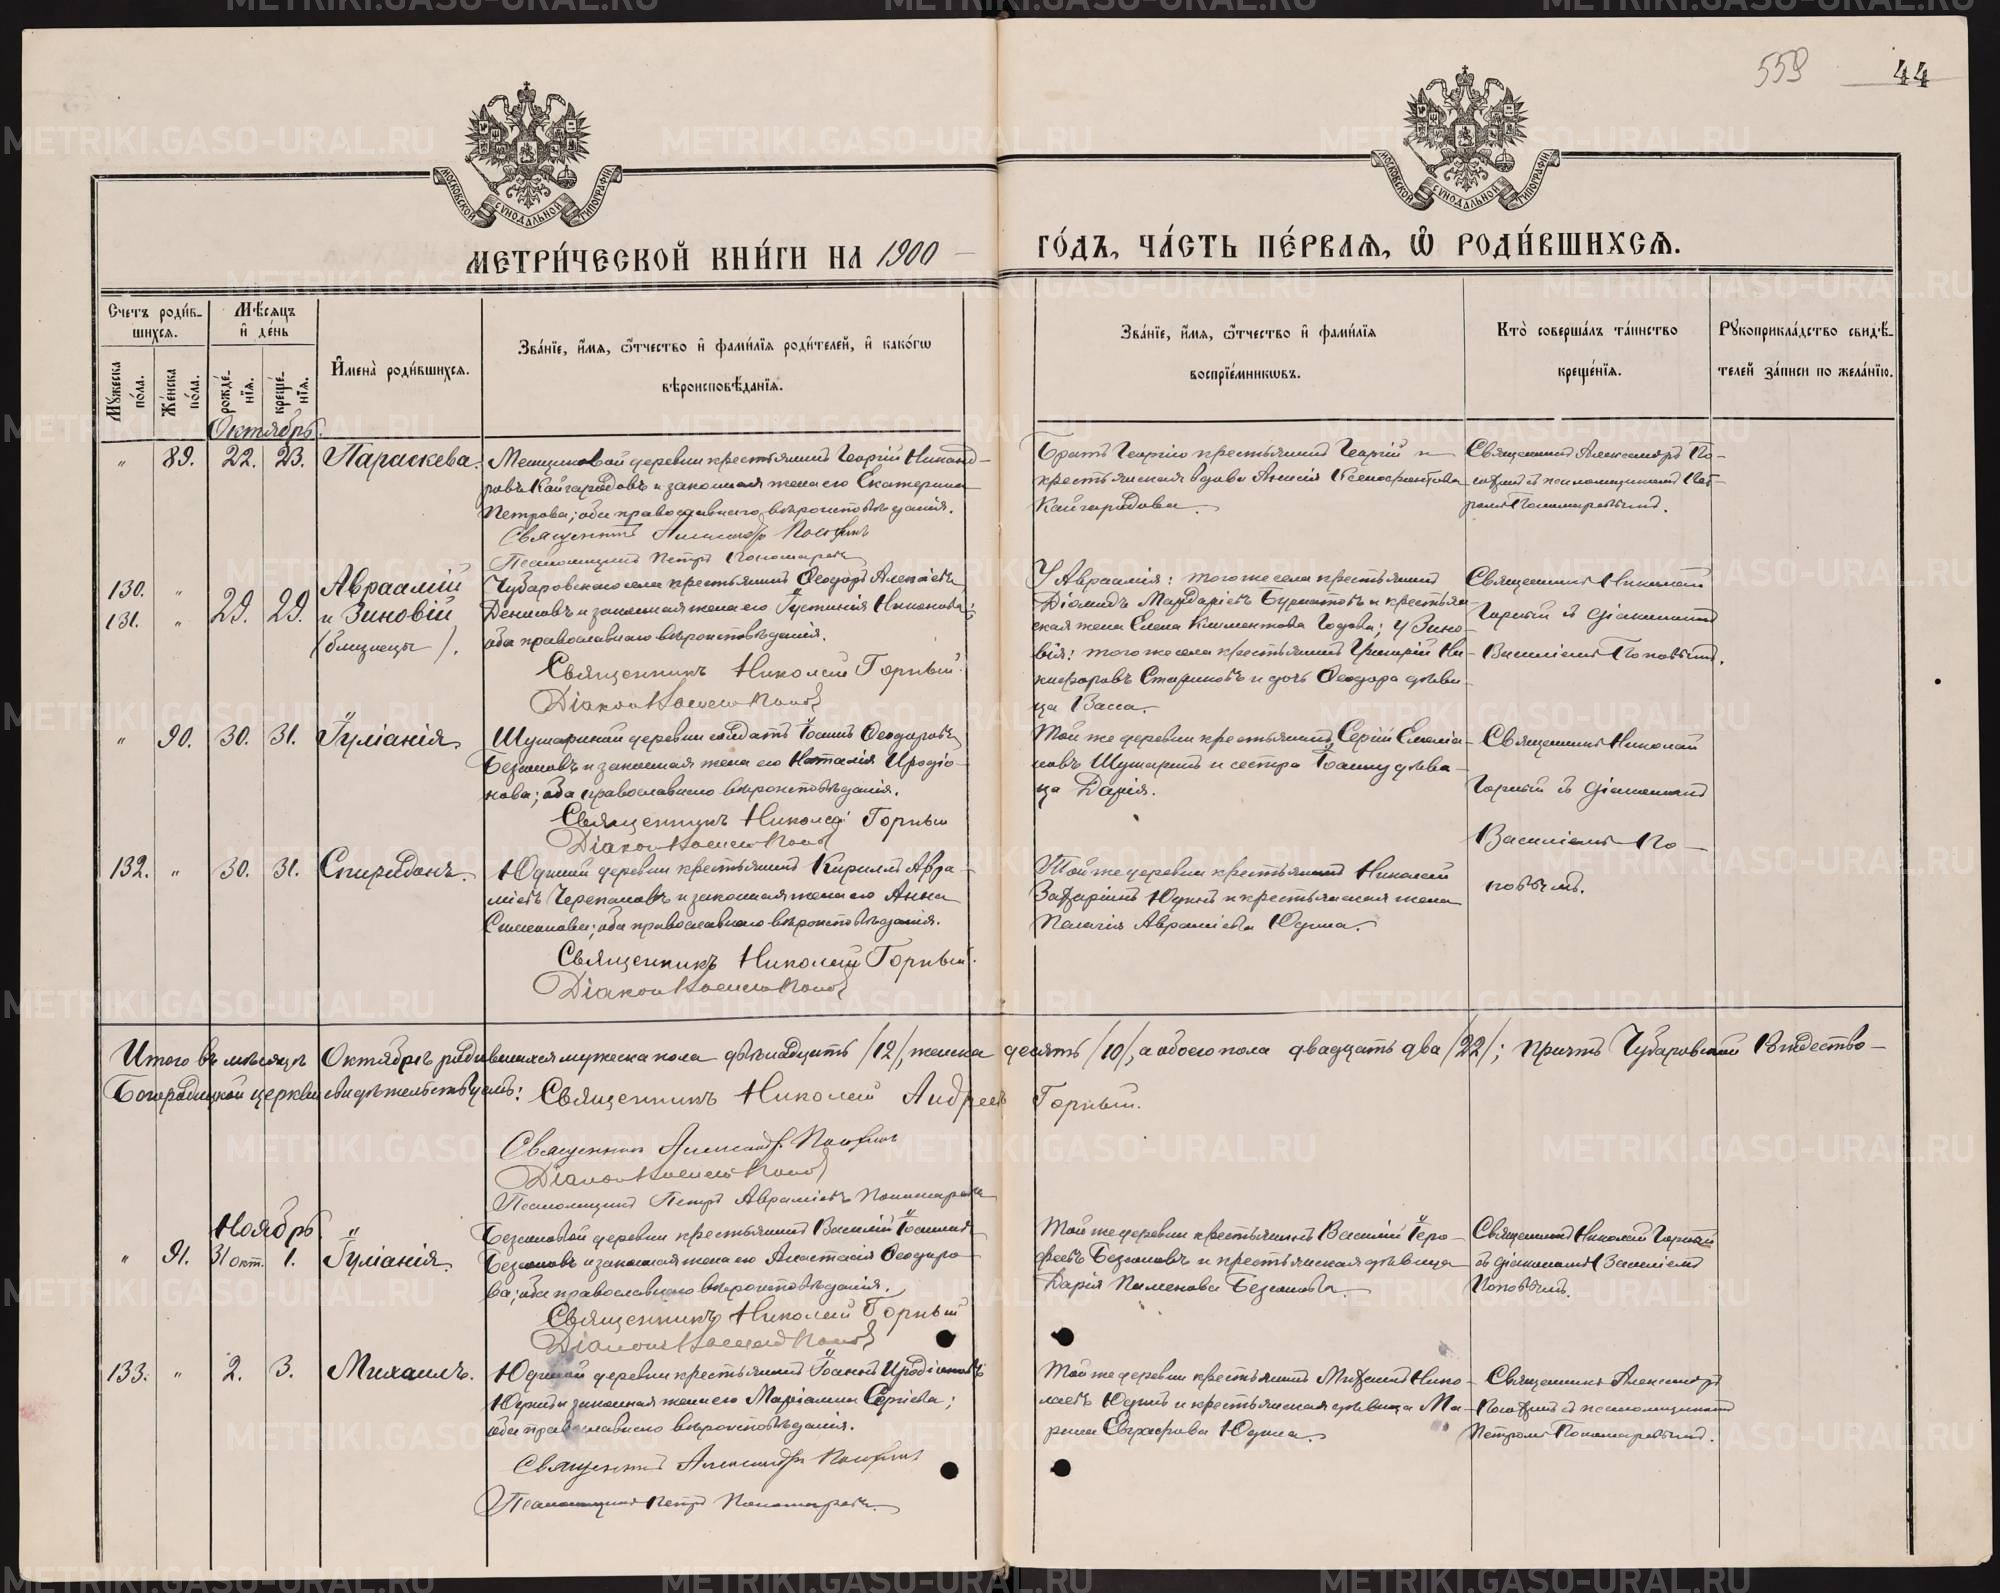 559
44
МОСКОВСКОЙ СѴНОДАЛЬНОЙ ТИПОГРАФІИ
МОСКОВСКОЙ СѴНОДАЛЬНОЙ ТИПОГРАФІИ
МЕТРИ́ЧЕСКОЙ КНИ́ГИ НА 1900
ГО́ДЪ, ЧА́СТЬ ПЕ́РВАѦ, Ѡ҆ РОДИ́ВШИХСѦ.
Счетъ роди́в-
шихсѧ.
Мѣ́сѧцъ
и҆ де́нь
Мꙋжеска по́ла.
Же́нска по́ла.
рожде́-нїѧ.
креще́-нїѧ.
И҆мена̀ роди́вшихсѧ.
Зва́нїе, и҆́мѧ, ѻ҆́тчество и҆ фами́лїѧ роди́телей, и҆ како́гѡ
вѣроисповѣ́данїѧ.
Зва́нїе, и҆́мѧ, ѻ҆́тчество и҆ фами́лїѧ
воспрїе́мникѡвъ.
Кто̀ соверша́лъ та́инство
креще́нїѧ.
Рꙋкоприкла́дство свидѣ́-
телей за́писи по жела́нїю.
Октябрь.
„ 89. 22. 23. Параскева.
Мещиковой деревни крестьянинъ Георгій Никанд-
ровъ Кайгородовъ и законная жена его Екатерина
Петрова; оба православнаго вѣроисповѣданія.
Священникъ Александръ
Псаломщикъ Петръ Пономаревъ
Братъ Георгію крестьянинъ Георгій и
крестьянская вдова Анисія Ксенофонтова
Кайгородова.
Священникъ Александръ По-
съ псаломщикомъ Пет-
ромъ Пономаревымъ.
130. „
131. „
29. 29.
Авраамій
и Зиновій
(близнецы).
Чубаровскаго села крестьянинъ Ѳеодоръ Алексѣевъ
Денисовъ и законная жена его Іустинія Никонова;
оба православнаго вѣроисповѣданія.
Священникъ Николай Горный.
Діаконъ Василій Поповъ
У Авраамія: того же села крестьянинъ
Діомидъ Мардаріевъ и крестьян-
ская жена Елена Климентова; У Зино-
вія: того же села крестьянинъ Григорій Ни-
кифоровъ Стариковъ и дочь Ѳеодора дѣви-
ца Васса.
Священникъ Николай
Горный съ діакономъ
Василіемъ Поповымъ.
„ 90. 30. 31. Іуліанія.
Шушариной деревни солдатъ Іоаннъ Ѳеодоровъ
Безсоновъ и законная жена его Наталія Иродіо-
нова; оба православнаго вѣроисповѣданія.
Священникъ Николай Горный
Діаконъ Василій Поповъ
Той же деревни крестьянинъ Сергій Емелія-
новъ Шушаринъ и сестра Іоанну дѣви-
ца Дарія.
Священникъ Николай
Горный съ діакономъ
Василіемъ По-
повымъ.
132. „ 30. 31. Спиридонъ.
Юдиной деревни крестьянинъ Кириллъ Авра-
міевъ Черепановъ и законная жена его Анна
Симеонова; оба православнаго вѣроисповѣданія.
Священникъ Николай Горный.
Діаконъ Василій Поповъ
Той же деревни крестьянинъ Николай
Захаринъ Юдинъ и крестьянская жена
Пелагія Авраміева Юдина.
Итого въ мѣсяцѣ Октябрѣ родившихся мужеска пола двѣнадцать /12/, женска десять /10/, а обоего пола двадцать два /22/; причтъ Чубаровской Рождество-
Богородицкой церкви свидѣтельствуемъ: Священникъ Николай Андреевъ Горный.
Священникъ Александръ
Діаконъ Василій Поповъ
Псаломщикъ Петръ Авраміевъ Пономаревъ
Ноябрь
„ 91. 31 окт. 1. Іуліанія.
Безсоновой деревни крестьянинъ Василій Іоанновъ
Безсоновъ и законная жена его Анастасія Ѳеодоро-
ва; оба православнаго вѣроисповѣданія.
Священникъ Николай Горный
Діаконъ Василій Поповъ
Той же деревни крестьянинъ Василій Іеро-
феевъ Безсоновъ и крестьянская дѣвица
Дарія Пименова Безсонова.
Священникъ Николай Горный
съ діакономъ Василіемъ
Поповымъ.
133. „ 2. 3. Михаилъ.
Юдиной деревни крестьянинъ Іоаннъ Иродіоновъ
Юдинъ и законная жена его Маріамна Сергіева;
оба православнаго вѣроисповѣданія.
Священникъ Александръ
Псаломщикъ Петръ Пономаревъ.
Той же деревни крестьянинъ Михаилъ Нико-
лаевъ Юдинъ и крестьянская дѣвица Ма-
рина Евграфова Юдина.
Священникъ Александръ
съ псаломщикомъ
Петромъ Пономаревымъ.
METRIKI.GASO-URAL.RU